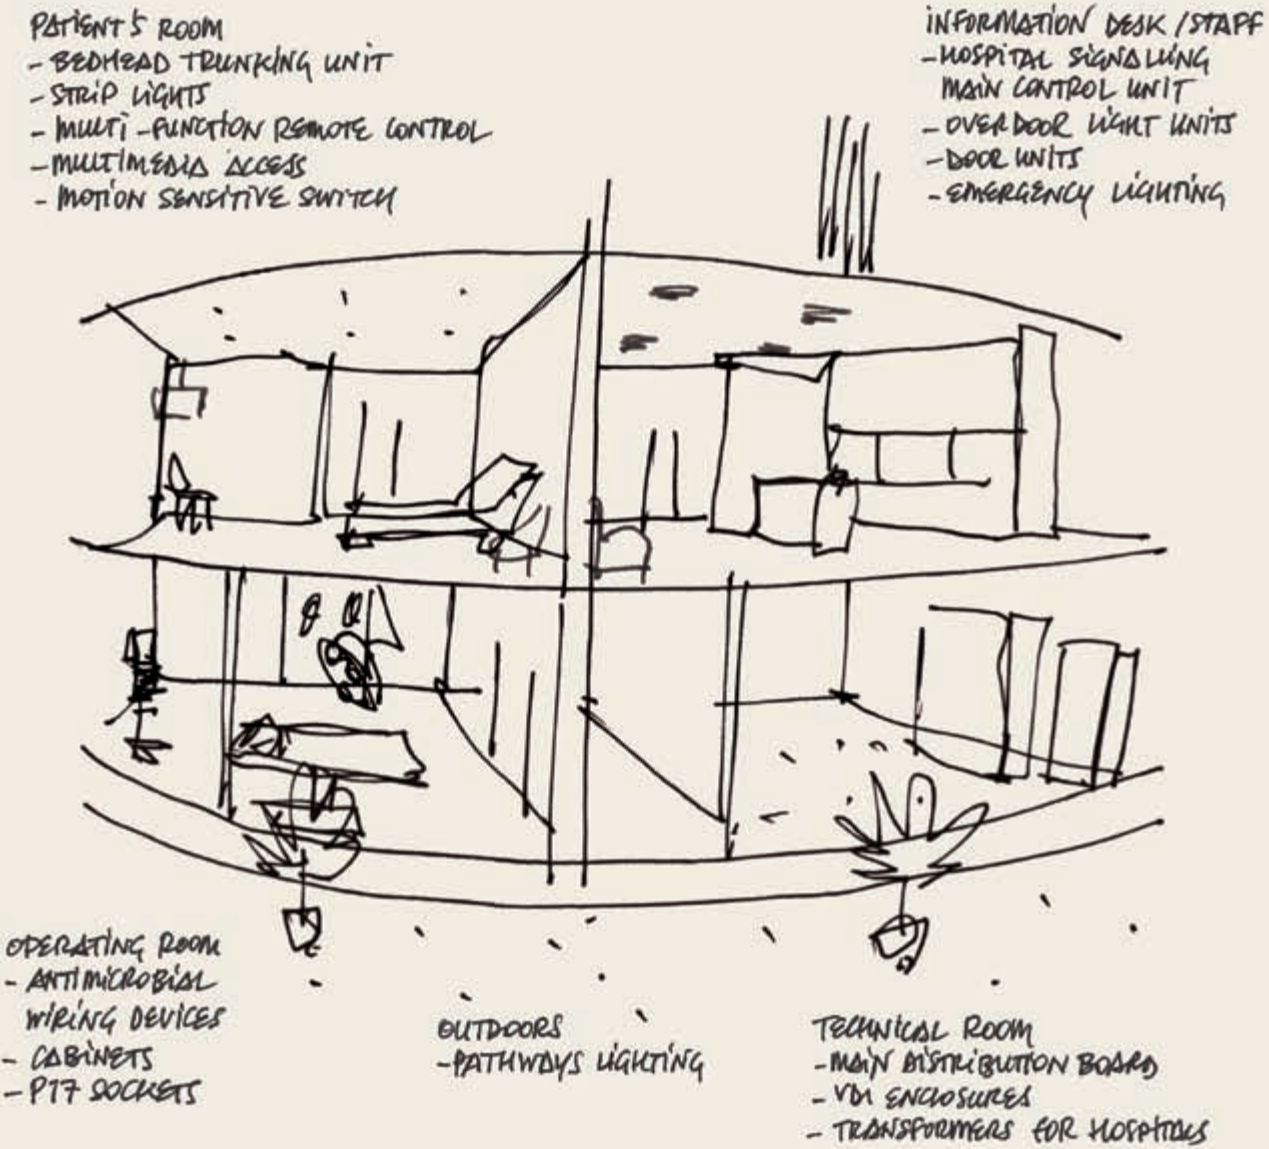 PATIENT'S ROOM
- BEDHEAD TRUNKING UNIT
- STRIP LIGHTS
- MULTI-FUNCTION REMOTE CONTROL
- MULTIMEDIA ACCESS
- MOTION SENSITIVE SWITCH
INFORMATION DESK / STAFF
- HOSPITAL SIGNALLING
MAIN CONTROL UNIT
- OVERDOOR LIGHT UNITS
- DOOR UNITS
- EMERGENCY LIGHTING
OPERATING ROOM
- ANTIMICROBIAL
WIRING DEVICES
- CABINETS
- P17 SOCKETS
OUTDOORS
- PATHWAYS LIGHTING
TECHNICAL ROOM
- MAIN DISTRIBUTION BOARD
- VDI ENCLOSURES
- TRANSFORMERS FOR HOSPITALS